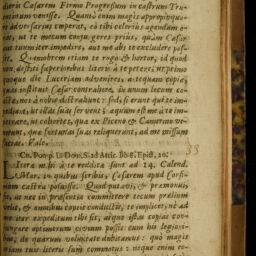 dierit Cæsarem Firmo Progressum in castrum Tru-
entinum venisse. Quamò enim magis appropinqua-
re adversarius cœperat, eò tibi celerius agendum e-
rat, ut te mecum conjungeres prius, quàm Cæsar
aut tuum iter impedire, aut me abs te excludere pos-
sit. Quamobrem etiam te rogo & hortor, id quod
non destiti superioribus literis à te petere, ut primo
quoque die Luceriam advenires, antequam copiæ,
quas instituit Cæsar contrahere, in unum locum co-
actæ, vos à nobis distrahant: sed, si erunt qui te im-
pediant, ut illas suas servent; æquum est me à te im-
petrare, ut cohortes, quæ ex Piceno & Camerino ve-
nerunt, quæ fortunas suas reliquerunt, ad me missum
facias. Vale.
33
Cn. Pomp. D. Dom. S. ad Attic. lib 8. Epist. 20.
Literæ mihi à te redditæ sunt ad 14. Calend.
Mar. in quibus scribis, Cæsarem apud Corfi-
nium castra posuisse. Quod putavi, & præmonui,
fit, ut nec in præsentia committere tecum prælium
velit, & omnibus copiis conductis, te implicet, ne ad
me iter expeditum tibi sit, atque istas copias con-
jungere optimorum civium possis cum his legioni-
bus, de quarum voluntate dubitamus: quò magis
etiam tuis literis sum commotus: neque enim eo-